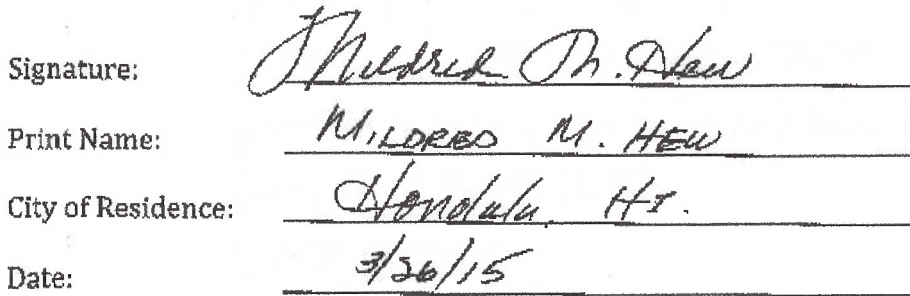 Signature: Mildred M. Hew
Print Name: MILDRED M. HEW
City of Residence: Honolulu, HI.
Date: 3/26/15